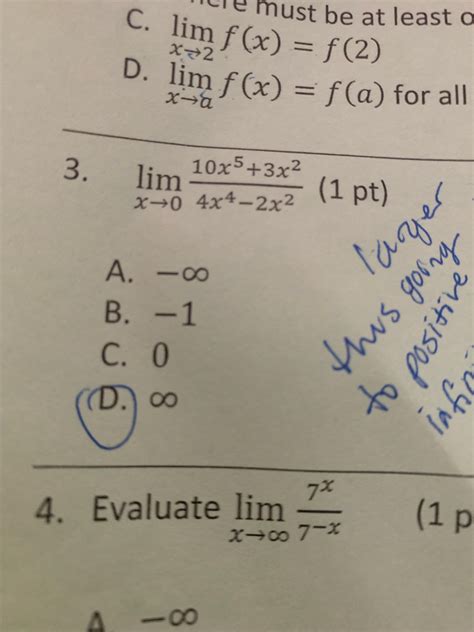 must be at least
C. lim x→2 f(x) = f(2)
D. lim x→a f(x) = f(a) for all
3. lim x→0 (10x⁵+3x²)/(4x⁴−2x²) (1 pt)
A. −∞
B. −1
C. 0
D. ∞
larger
thus going
to positive
4. Evaluate lim x→∞ 7ˣ/7⁻ˣ (1 p
A −∞